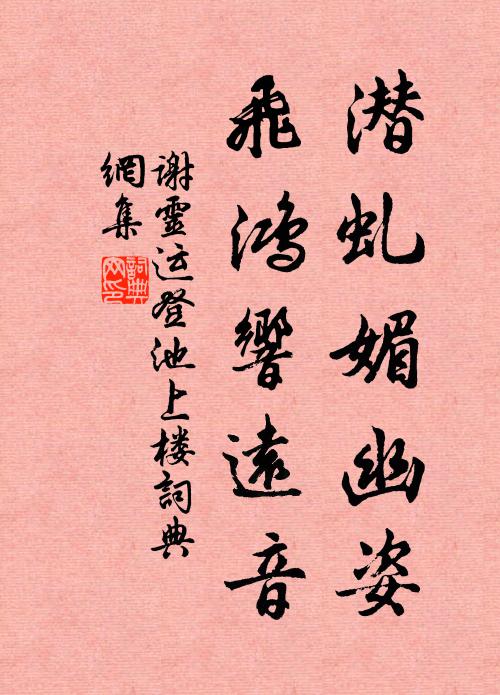 潜虬媚幽姿
飛鴻響遠音
谢靈运登池上楼詞典
網集
詞典
网印